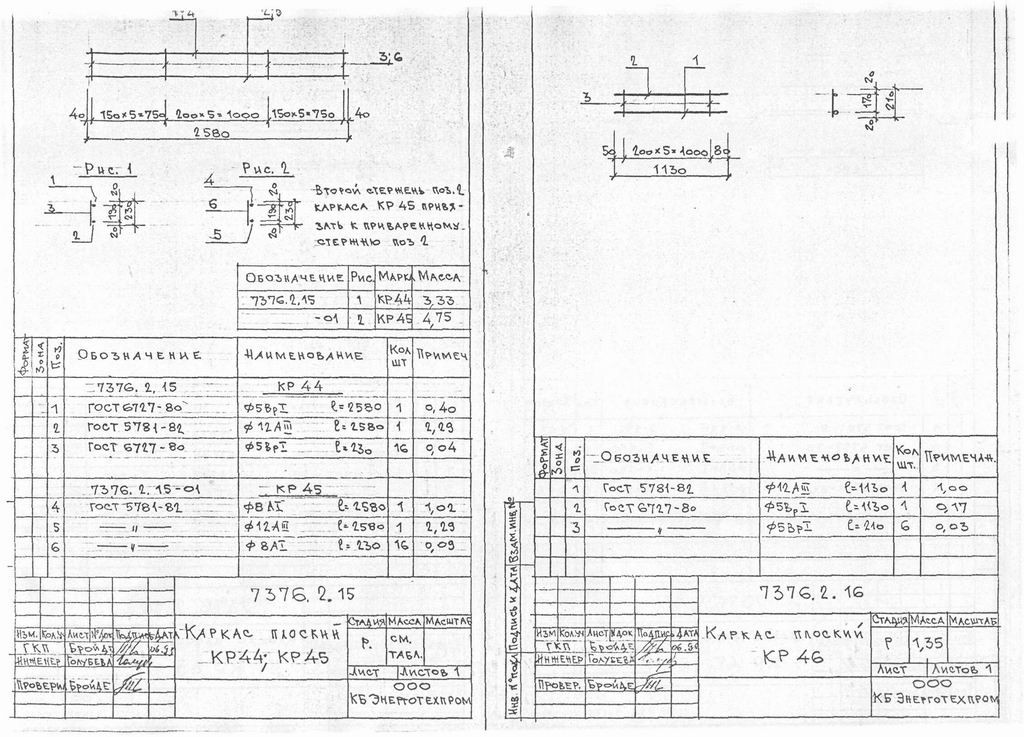 1;4 2;5
3;6
40 150×5=750 200×5=1000 150×5=750 40
2580
Рис. 1
1
3
2
20
190
20
230
Рис. 2
4
6
5
20
190
20
230
Второй стержень поз. 2
каркаса КР 45 привя-
зать к приваренному
стержню поз 2
Обозначение Рис. Марка Масса
7376.2.15 1 КР44 3,33
-01 2 КР45 4,75
Формат Зона Поз. Обозначение Наименование Кол шт Примеч
7376.2.15 КР 44
1 ГОСТ 6727-80 Ф5ВрI ℓ=2580 1 0,40
2 ГОСТ 5781-82 Ф12АIII ℓ=2580 1 2,29
3 ГОСТ 6727-80 Ф5ВрI ℓ=230 16 0,04
7376.2.15-01 КР 45
4 ГОСТ 5781-82 Ф8АI ℓ=2580 1 1,02
5 —〃— Ф12АIII ℓ=2580 1 2,29
6 —〃— Ф8АI ℓ=230 16 0,09
7376.2.15
Изм. Кол.уч Лист №док Подпись Дата
ГКП Бройде 06.95
Инженер Голубева
Проверил Бройде
Каркас плоский
КР44; КР45
Стадия Масса Масштаб
Р. см. табл.
Лист Листов 1
ООО
КБ Энерготехпром
2 1
3
50 200×5=1000 80
1130
20
170
20
210
Формат Зона Поз. Обозначение Наименование Кол шт. Примечан.
1 ГОСТ 5781-82 Ф12АIII ℓ=1130 1 1,00
2 ГОСТ 6727-80 Ф5ВрI ℓ=1130 1 0,17
3 —〃— Ф5ВрI ℓ=210 6 0,03
Инв. № подл Подпись и дата Взам.инв.№
7376.2.16
Изм Кол.уч Лист №док Подпись Дата
ГКП Бройде 06.95
Инженер Голубева
Провер. Бройде
Каркас плоский
КР 46
Стадия Масса Масштаб
Р 1,35
Лист Листов 1
ООО
КБ Энерготехпром